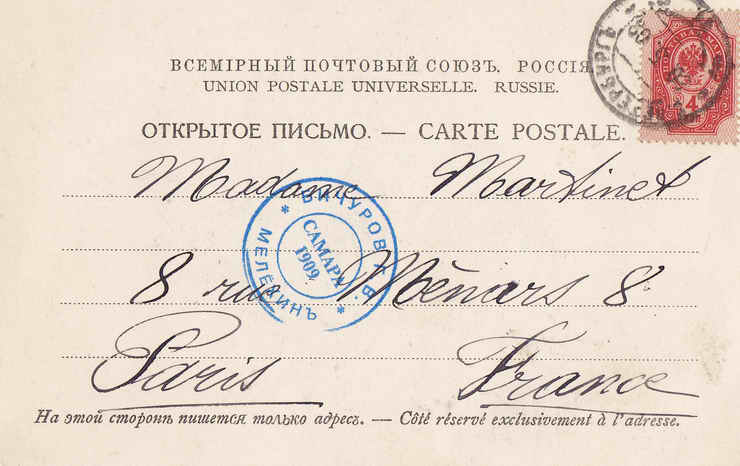 ВСЕМІРНЫЙ ПОЧТОВЫЙ СОЮЗЪ. РОССІЯ
UNION POSTALE UNIVERSELLE. RUSSIE.
ОТКРЫТОЕ ПИСЬМО. — CARTE POSTALE.
4
Madame Martinet
САМАРА
1909.
8 rue Ménars 8
Paris France
На этой сторонѣ пишется только адресъ. — Côté réservé exclusivement à l'adresse.